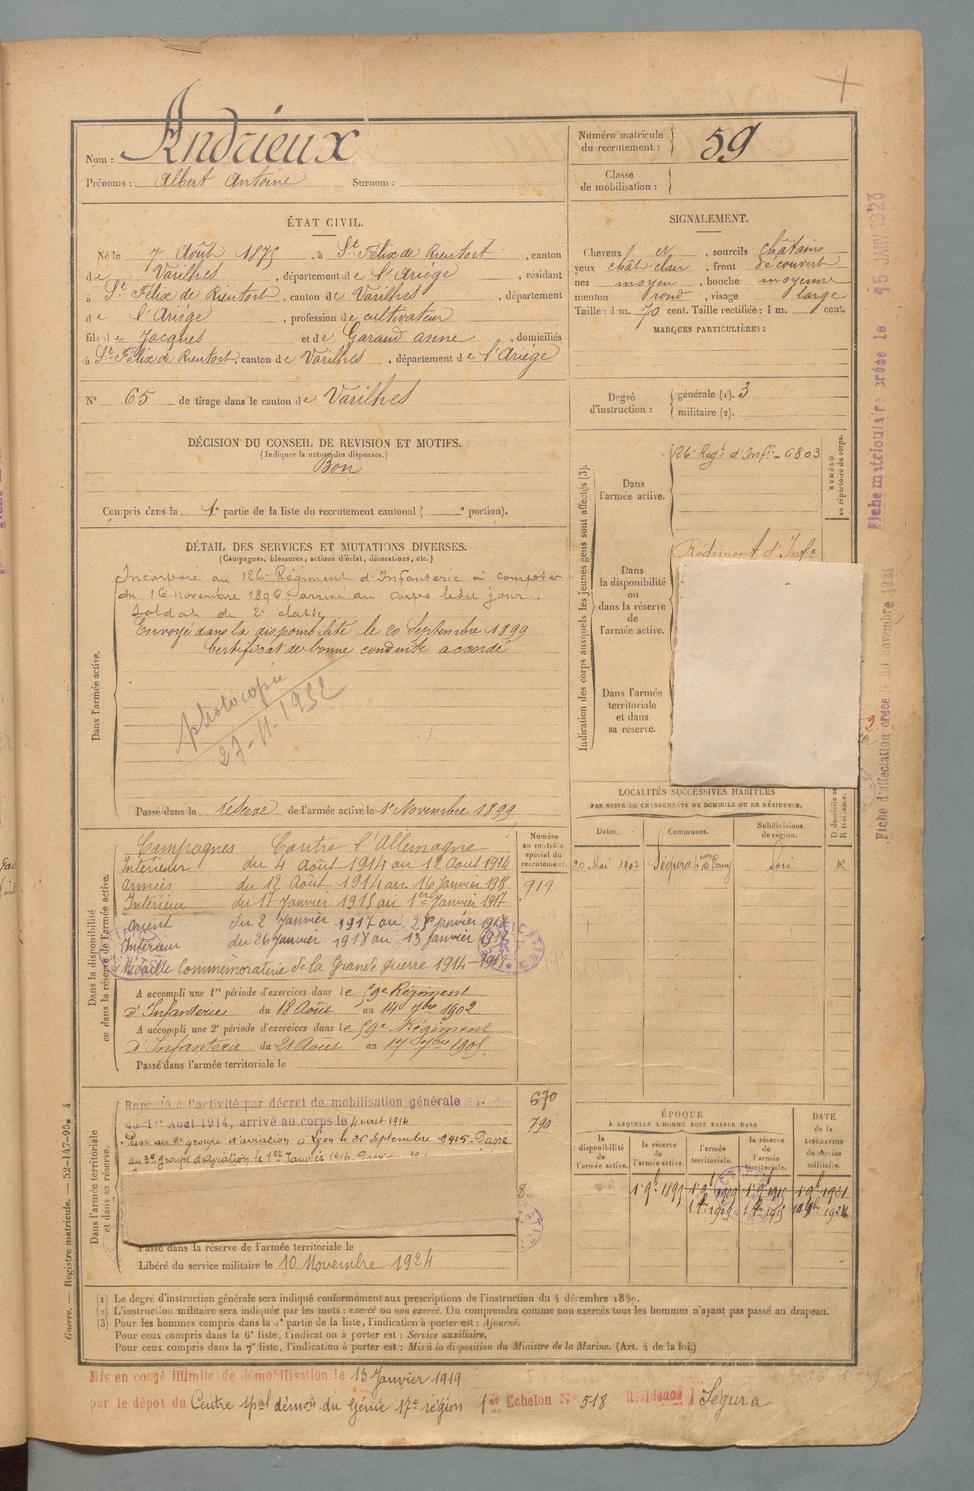 Nom : Andrieux
Prénoms : Albert Antoine Surnom :
Numéro matricule du recrutement : 59
Classe de mobilisation :
ÉTAT CIVIL.
Né le 7 Août 1875, à St Félix de Rieutort, canton
de Varilhes, département de l'Ariège, résidant
à St Félix de Rieutort, canton de Varilhes, département
de l'Ariège, profession de cultivateur
fils de Jacques et de Garaud anne, domiciliés
à St Félix de Rieutort, canton de Varilhes, département de l'Ariège
N° 65 de tirage dans le canton de Varilhes
SIGNALEMENT.
Cheveux et, sourcils châtains
yeux chât clair, front découvert
nez moyen, bouche moyenne
menton rond, visage large
Taille : 1 m. 70 cent. Taille rectifiée : 1 m. cent.
MARQUES PARTICULIÈRES :
Degré d'instruction : générale (1). 3
militaire (2).
DÉCISION DU CONSEIL DE REVISION ET MOTIFS.
(Indiquer la nature des dispenses.)
Bon
Compris dans la 1e partie de la liste du recrutement cantonal ( e portion).
Indication des corps auxquels les jeunes gens sont affectés (3).
Dans l'armée active.
126e Regt d'Infie - 6803
NUMÉRO au répertoire du corps.
Dans la disponibilité ou dans la réserve de l'armée active.
Régiment d'Infie
Dans l'armée territoriale et dans sa réserve.
DÉTAIL DES SERVICES ET MUTATIONS DIVERSES.
(Campagnes, blessures, actions d'éclat, décorations, etc.)
Dans l'armée active.
Incorporé au 126e Régiment d'Infanterie à compter
du 16 novembre 1896, arrivé au corps ledit jour.
Soldat de 2e classe
Envoyé dans la disponibilité le 20 Septembre 1899
Certificat de bonne conduite accordé
photocopie
27-11-1952
Passé dans la réserve de l'armée active le 1er Novembre 1899
Dans la disponibilité ou dans la réserve de l'armée active.
Numéro au contrôle spécial du recrutement
919
Campagnes Contre l'Allemagne
Intérieur du 4 Août 1914 au 12 Août 1914
Armées du 12 Août 1914 au 16 Janvier 1915
Intérieur du 17 Janvier 1915 au 1er Janvier 1917
Orient du 2 Janvier 1917 au 25 Janvier 1918
Intérieur du 26 Janvier 1918 au 13 Janvier 1919
Médaille Commémorative de la Grande guerre 1914-1918
A accompli une 1re période d'exercices dans le 59e Régiment
d'Infanterie du 18 Août au 14 7bre 1902.
A accompli une 2e période d'exercices dans le 59e Régiment
d'Infanterie du 21 Août au 17 7bre 1905.
Passé dans l'armée territoriale le
LOCALITÉS SUCCESSIVES HABITÉES
PAR SUITE DE CHANGEMENTS DE DOMICILE OU DE RÉSIDENCE.
Dates. Communes. Subdivisions de région. D domicile ou R résidence.
20 Mai 1902 Ségura Foix R
Dans l'armée territoriale et dans sa réserve.
Rappelé à l'activité par décret de mobilisation générale
du 1er Août 1914, arrivé au corps le 4 août 1914
Passé au 2e groupe d'aviation à Lyon le 25 Septembre 1915. Passé
au 3e groupe d'aviation le 1er Janvier 1916.
670
790
8
Passé dans la réserve de l'armée territoriale le
Libéré du service militaire le 10 Novembre 1924
ÉPOQUE
À LAQUELLE L'HOMME DOIT PASSER DANS
la disponibilité de l'armée active. la réserve de l'armée active. l'armée territoriale. la réserve de l'armée territoriale.
DATE de la LIBÉRATION du service militaire.
1er 9b 1899 1er 9b 1909 1er 9b 1915 1er 9b 1921
1909 1915 10 9bre 1924
(1) Le degré d'instruction générale sera indiqué conformément aux prescriptions de l'instruction du 4 décembre 1889.
(2) L'instruction militaire sera indiquée par les mots : exercé ou non exercé. On comprendra comme non exercés tous les hommes n'ayant pas passé au drapeau.
(3) Pour les hommes compris dans la 5e partie de la liste, l'indication à porter est : Ajourné.
Pour ceux compris dans la 6e liste, l'indication à porter est : Service auxiliaire.
Pour ceux compris dans la 7e liste, l'indication à porter est : Mis à la disposition du Ministre de la Marine. (Art. 4 de la loi.)
Mis en congé illimité de démobilisation le 13 Janvier 1919
par le dépôt du Centre spal démon du Génie 17e région 1er Echelon N° 518 Résidence Ségura
Guerre. — Registre matricule. — 52-147-95. 4
Fiche matriculaire créée le 15 JANV 1923
Fiche d'affectation créée le 30 novembre 1921